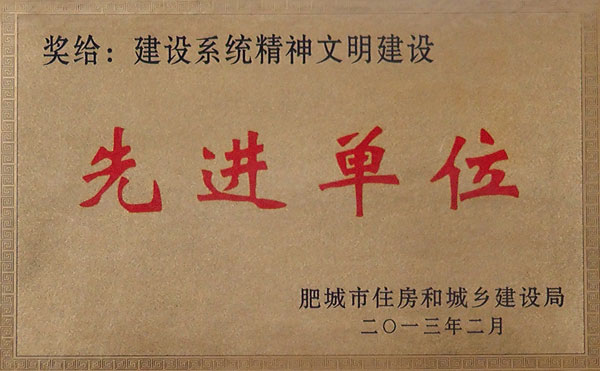 奖给：建设系统精神文明建设
先进单位
肥城市住房和城乡建设局
二〇一三年二月